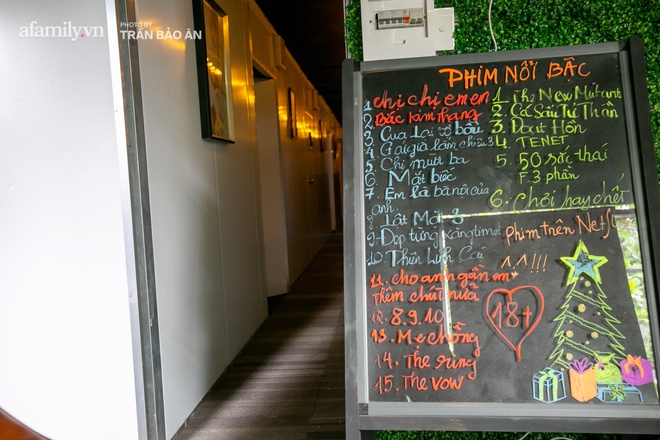 afamily.vn
PHOTO BY
TRẦN BẢO ÂN
PHIM NỔI BẬC
1 chị chị em em
2 Bắc kim thang
3 Cua Lại vợ bầu
4 Gái già lắm chiêu 3
5 Chị mười ba
6 Mắt biếc
7. Em là bà nội của anh
Lật Mặt 3
9. Đẹp từng xăngtimet
10. Thiên Linh Cái
11. cho anh gần em
Thêm chút nữa
12. 8.9.10
13. Mẹ chồng
14. The ring
15. The vow
1. The New Mutants
2. Cá Sấu Tử Thần
3. Đoạt Hồn
4. TENET
5. 50 sắc thái
F.3 phần
6. Chơi hay chết
Phim trên
^.^!!!
18+